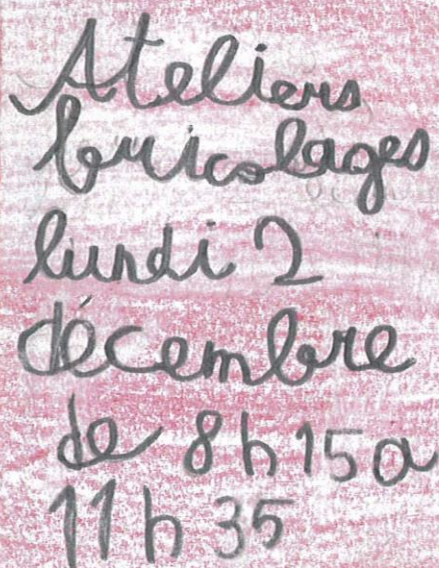 Ateliers
bricolages
lundi 2
décembre
de 8h15 a
11h35